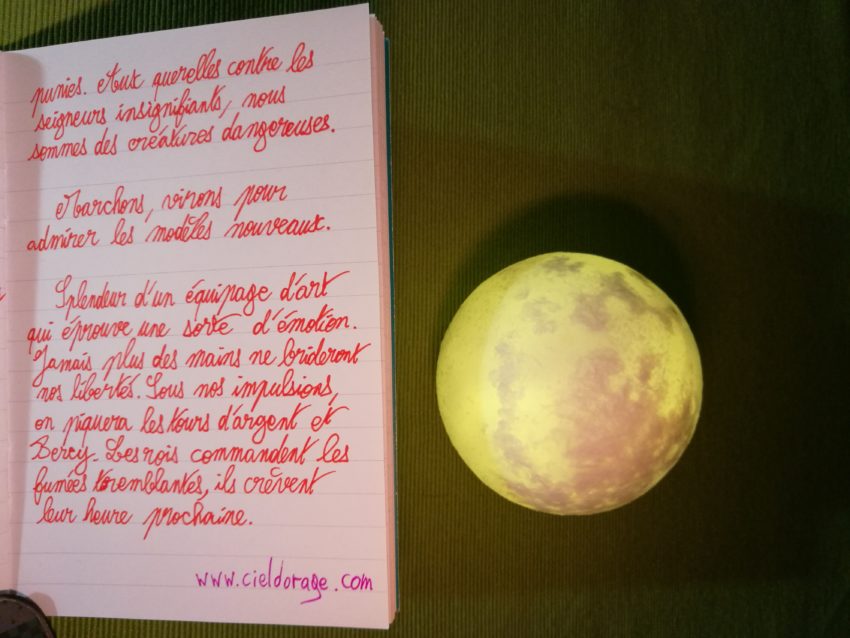 punies. Aux querelles contre les
seigneurs insignifiants, nous
sommes des créatures dangereuses.
Marchons, virons pour
admirer les modèles nouveaux.
Splendeur d'un équipage d'art
qui éprouve une sorte d'émotion.
Jamais plus des mains ne brideront
nos libertés. Sous nos impulsions,
on piquera les tours d'argent et
Bercy. Les rois commandent les
fumées tremblantes, ils crèvent
leur heure prochaine.
www.cieldorage.com